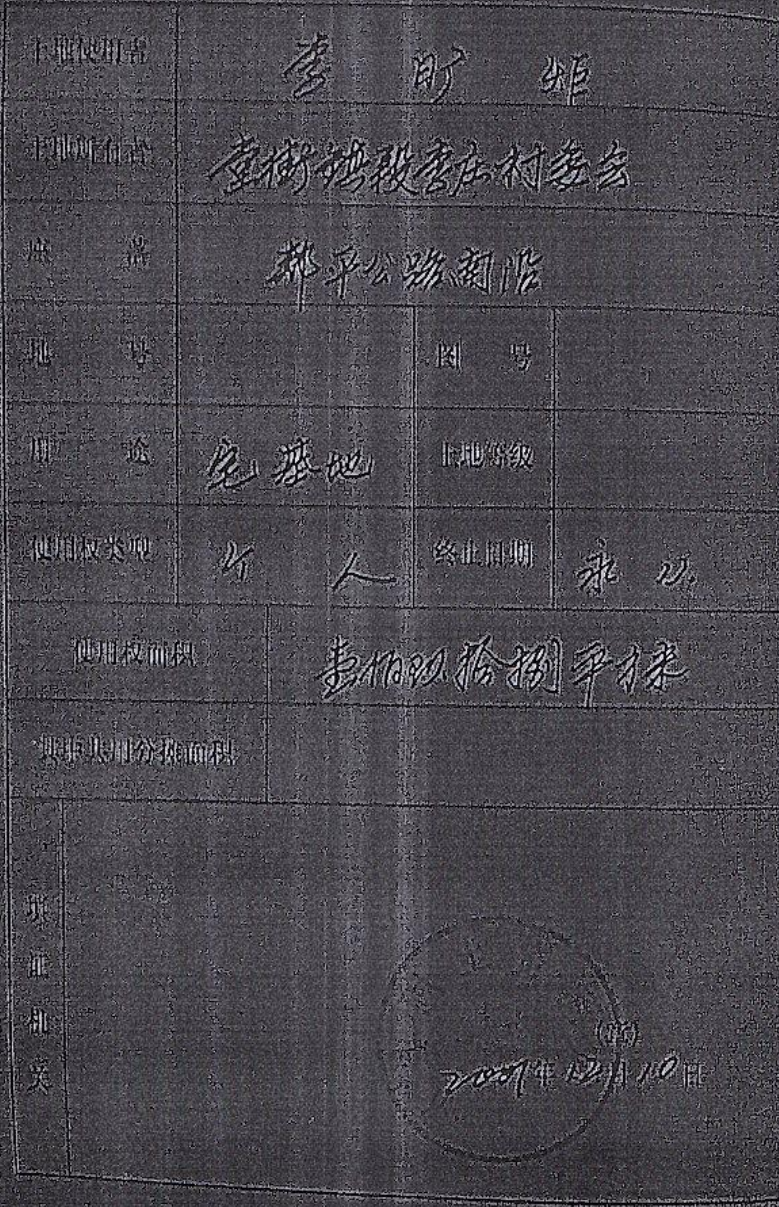 土地使用者 李 旷 炬
土地所有者 壹街镇段李庄村委会
座 落 郸平公路南沿
地 号 图 号
用 途 宅基地 土地等级
使用权类型 个 人 终止日期 永 久
使用权面积 壹佰玖拾捌平方米
其中共用分摊面积
填证机关
(章)
2007年12月10日